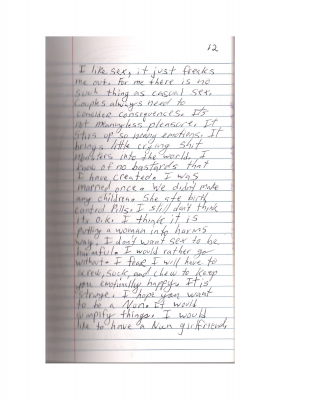 12
I like sex, it just freeks
me out. For me there is no
such thing as casual sex.
Couples always need to
consider consequences. It's
not meaningless pleasure. It
stirs up so many emotions. It
brings little crying shit
monsters into the world. I
know of no bastards that
I have created. I was
married once. We didn't make
any children. She ate birth
control Pills. I still don't think
its O.K. I think it is
putting a woman into harms
way. I don't want sex to be
harmful. I would rather go
without. I fear I will have to
screw, suck, and chew to keep
you emotionally happy. It is
strange. I hope you want
to be a Nun. It would
simplify things. I would
like to have a Nun girlfriend.